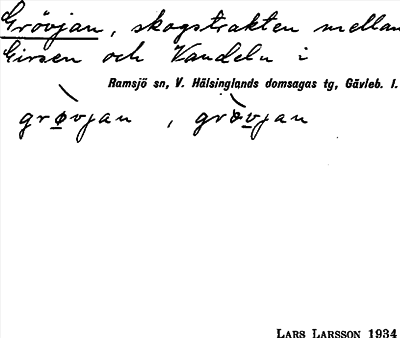 Grövjan, skogstrakten mellan
Girsen och Vandeln i
Ramsjö sn, V. Hälsinglands domsagas tg, Gävleb. l.
grøvjan, gròvjan
LARS LARSSON 1934